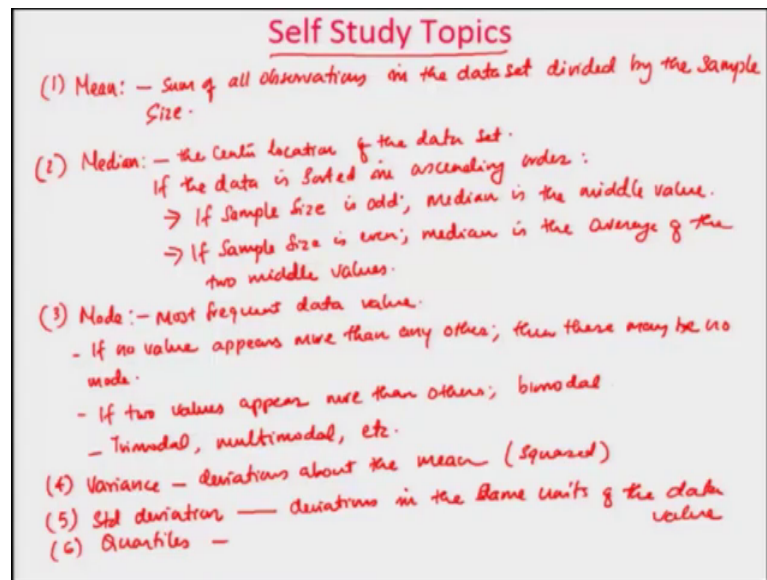 Self Study Topics
(1) Mean: - Sum of all observations in the data set divided by the sample
Size.
(2) Median: - the center location of the data set.
If the data is sorted in ascending order:
→ If Sample Size is odd; median is the middle value.
→ If Sample Size is even; median is the average of the
two middle values.
(3) Mode: - Most frequent data value.
- If no value appears more than any other; then there may be no
mode.
- If two values appear more than others; bimodal
- Trimodal, multimodal, etc.
(4) Variance - deviations about the mean (squared)
(5) Std deviation — deviations in the same units of the data
value
(6) Quartiles -